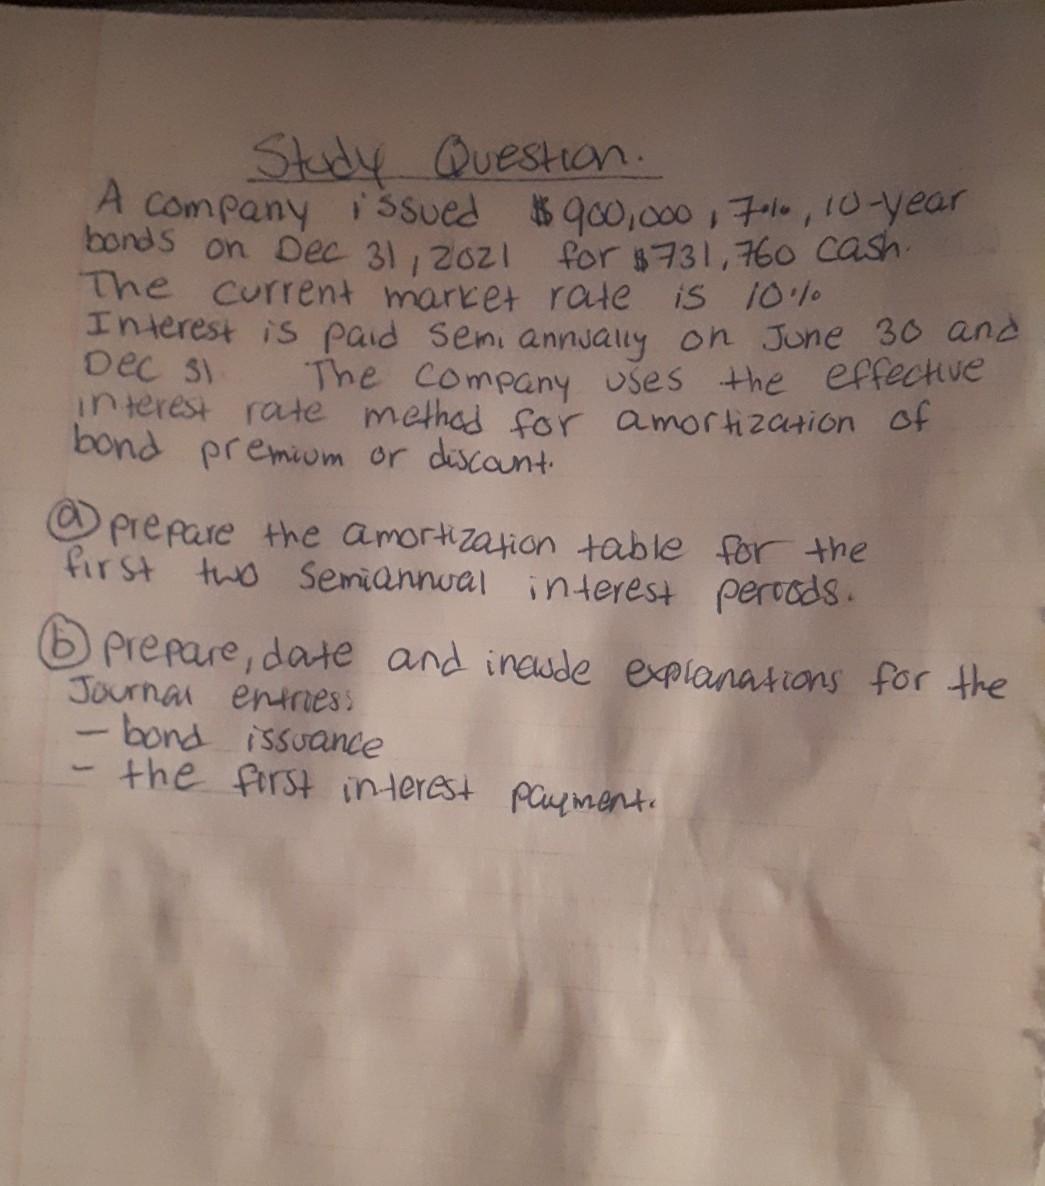 Study Question.
A company issued $900,000, 7%, 10-year
bonds on Dec 31, 2021 for $731,760 cash.
The current market rate is 10%
Interest is paid semi annually on June 30 and
Dec 31 The company uses the effective
interest rate method for amortization of
bond premium or discount.
(a) prepare the amortization table for the
first two semiannual interest peroods.
(b) prepare, date and include explanations for the
Journal entries:
- bond issuance
- the first interest payment.